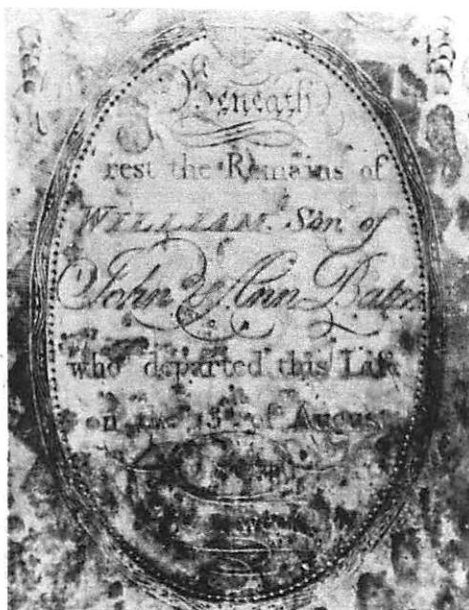 Beneath
rest the Remains of
WILLIAM Son of
John & Ann Bates
who departed this Life
on the 13th of August